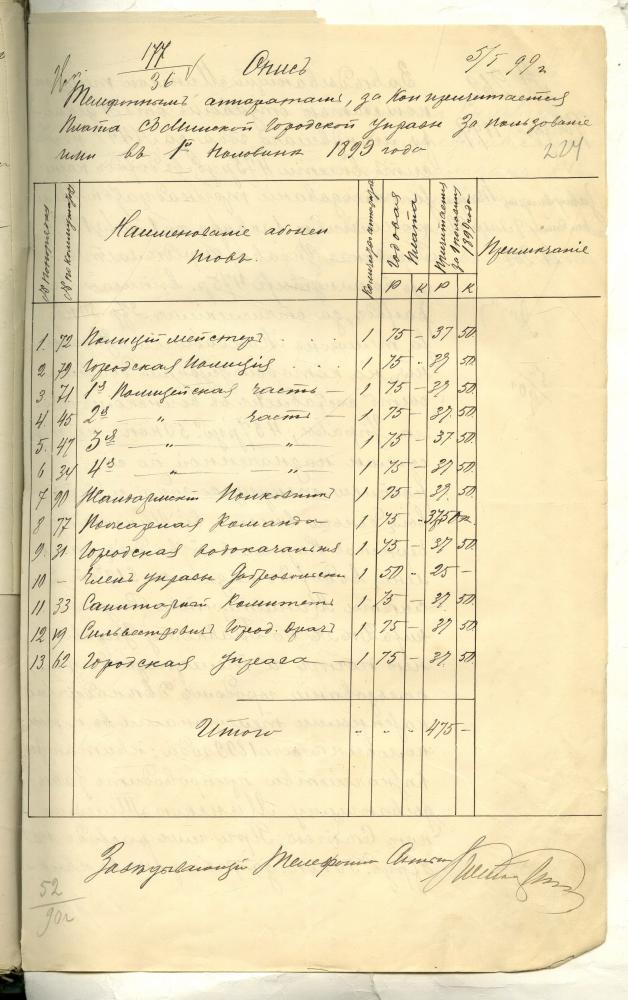 177/36 Опись 5/I 99 г.
Телефоннымъ аппаратамъ, за кои причитается
плата съ Минской Городской управы за пользованіе
ими въ 1ой половинѣ 1899 года
227
№ по порядку | № по коммутатору | Наименованіе абонентовъ | Количество аппаратовъ | Годовая плата Р К | Причитается за 1 половину 1899 года Р К | Примѣчаніе
1. 72 Полиціймейстеръ . . . . 1 75 – 37 50.
2 79. Городская Полиція 1 75 „ 37 50.
3 71 1я Полицейская часть — 1 75 – 37 50.
4. 45 2я „ часть — 1 75 – 37. 50.
5. 47 3я — „ — „ — 1 75 – 37 50.
6 34 4я — „ „ — 1 75 – 37 50.
7 90 Жандармскій Полковникъ 1 75 – 37. 50.
8 77 Пожарная Команда 1 75 „ 37 50 к.
9. 31. Городская водокачальня 1 75 – 37 50.
10 – Членъ управы 1 50 „ 25 –
11 33 Санитарный Комитетъ 1 75 – 37 50.
12 19 Сильвестровичъ Город. врачъ 1 75 – 37 50.
13 62 Городская управа — 1 75 – 37. 50.
Итого „ „ „ 475 –
Завѣдывающій Телефонн.
52/90г